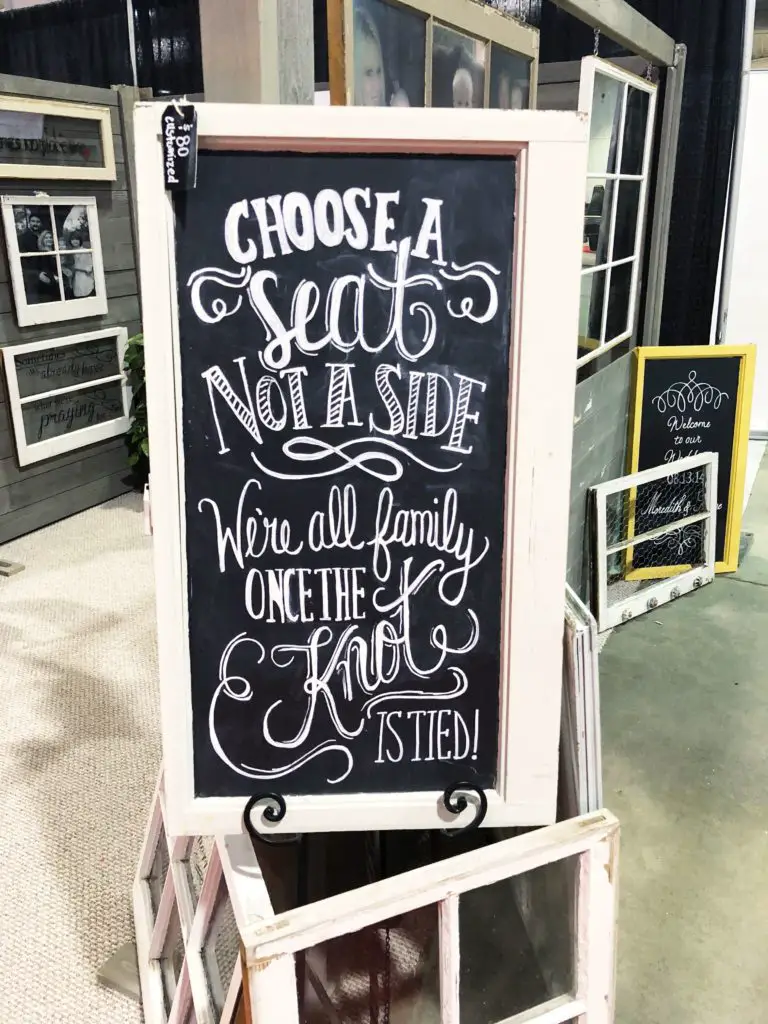 $80
customized
CHOOSE A
seat
NOT A SIDE
We're all family
ONCE THE
Knot
IS TIED!
Sometimes
already have
praying
Welcome
to our
08.13.14
Meredith &